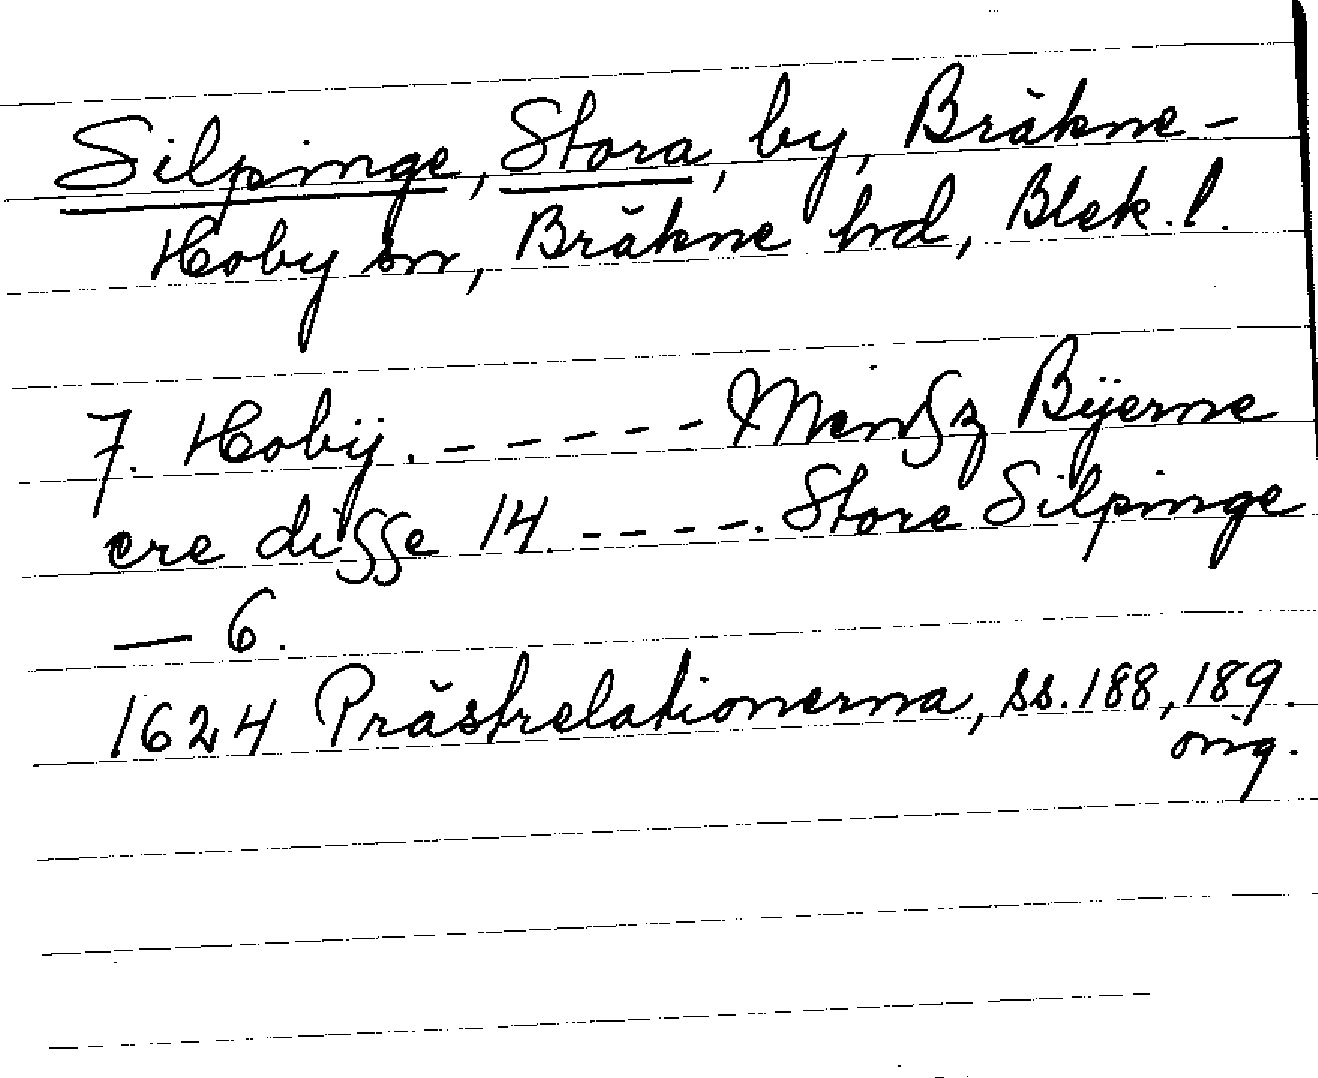 Silpinge, Stora, by, Bräkne-
Hoby sn, Bräkne hrd, Blek. l.
7. Hobÿ. - - - - - - Mendsz Bÿerne
ere disse 14. - - - - -. Store Silpinge
— 6.
1624 Prästrelationerna, ss. 188, 189.
orig.